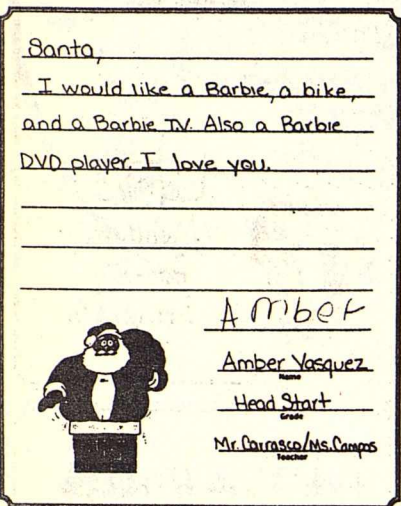 Santa,
I would like a Barbie, a bike,
and a Barbie TV. Also a Barbie
DVD player. I love you.
Amber
Amber Vasquez
Name
Head Start
Grade
Mr. Carrasco/Ms. Campos
Teacher